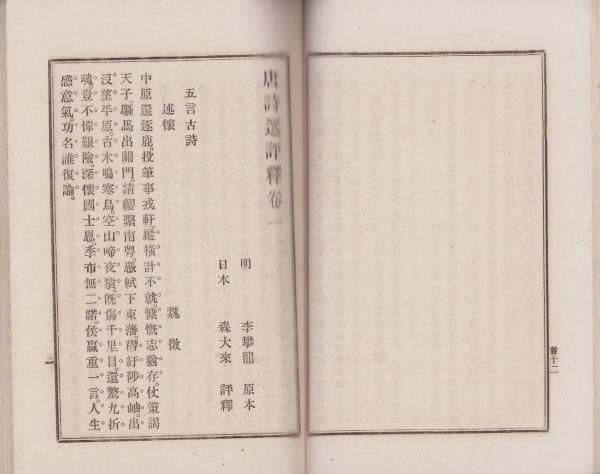 首十二
唐詩選評釋卷一
明　李攀龍　原本
日本　森大來　評釋
五言古詩
述懷
魏徵
中原還逐鹿。投筆事戎軒。縱橫計不就。慷慨志猶存。仗策謁
天子。驅馬出關門。請纓繫南粤。憑軾下東藩。鬱紆陟高岫。出
沒望平原。古木鳴寒鳥。空山啼夜猿。旣傷千里目。還驚九折
魂。豈不憚艱險。深懷國士恩。季布無二諾。侯嬴重一言。人生
感意氣。功名誰復論。
一